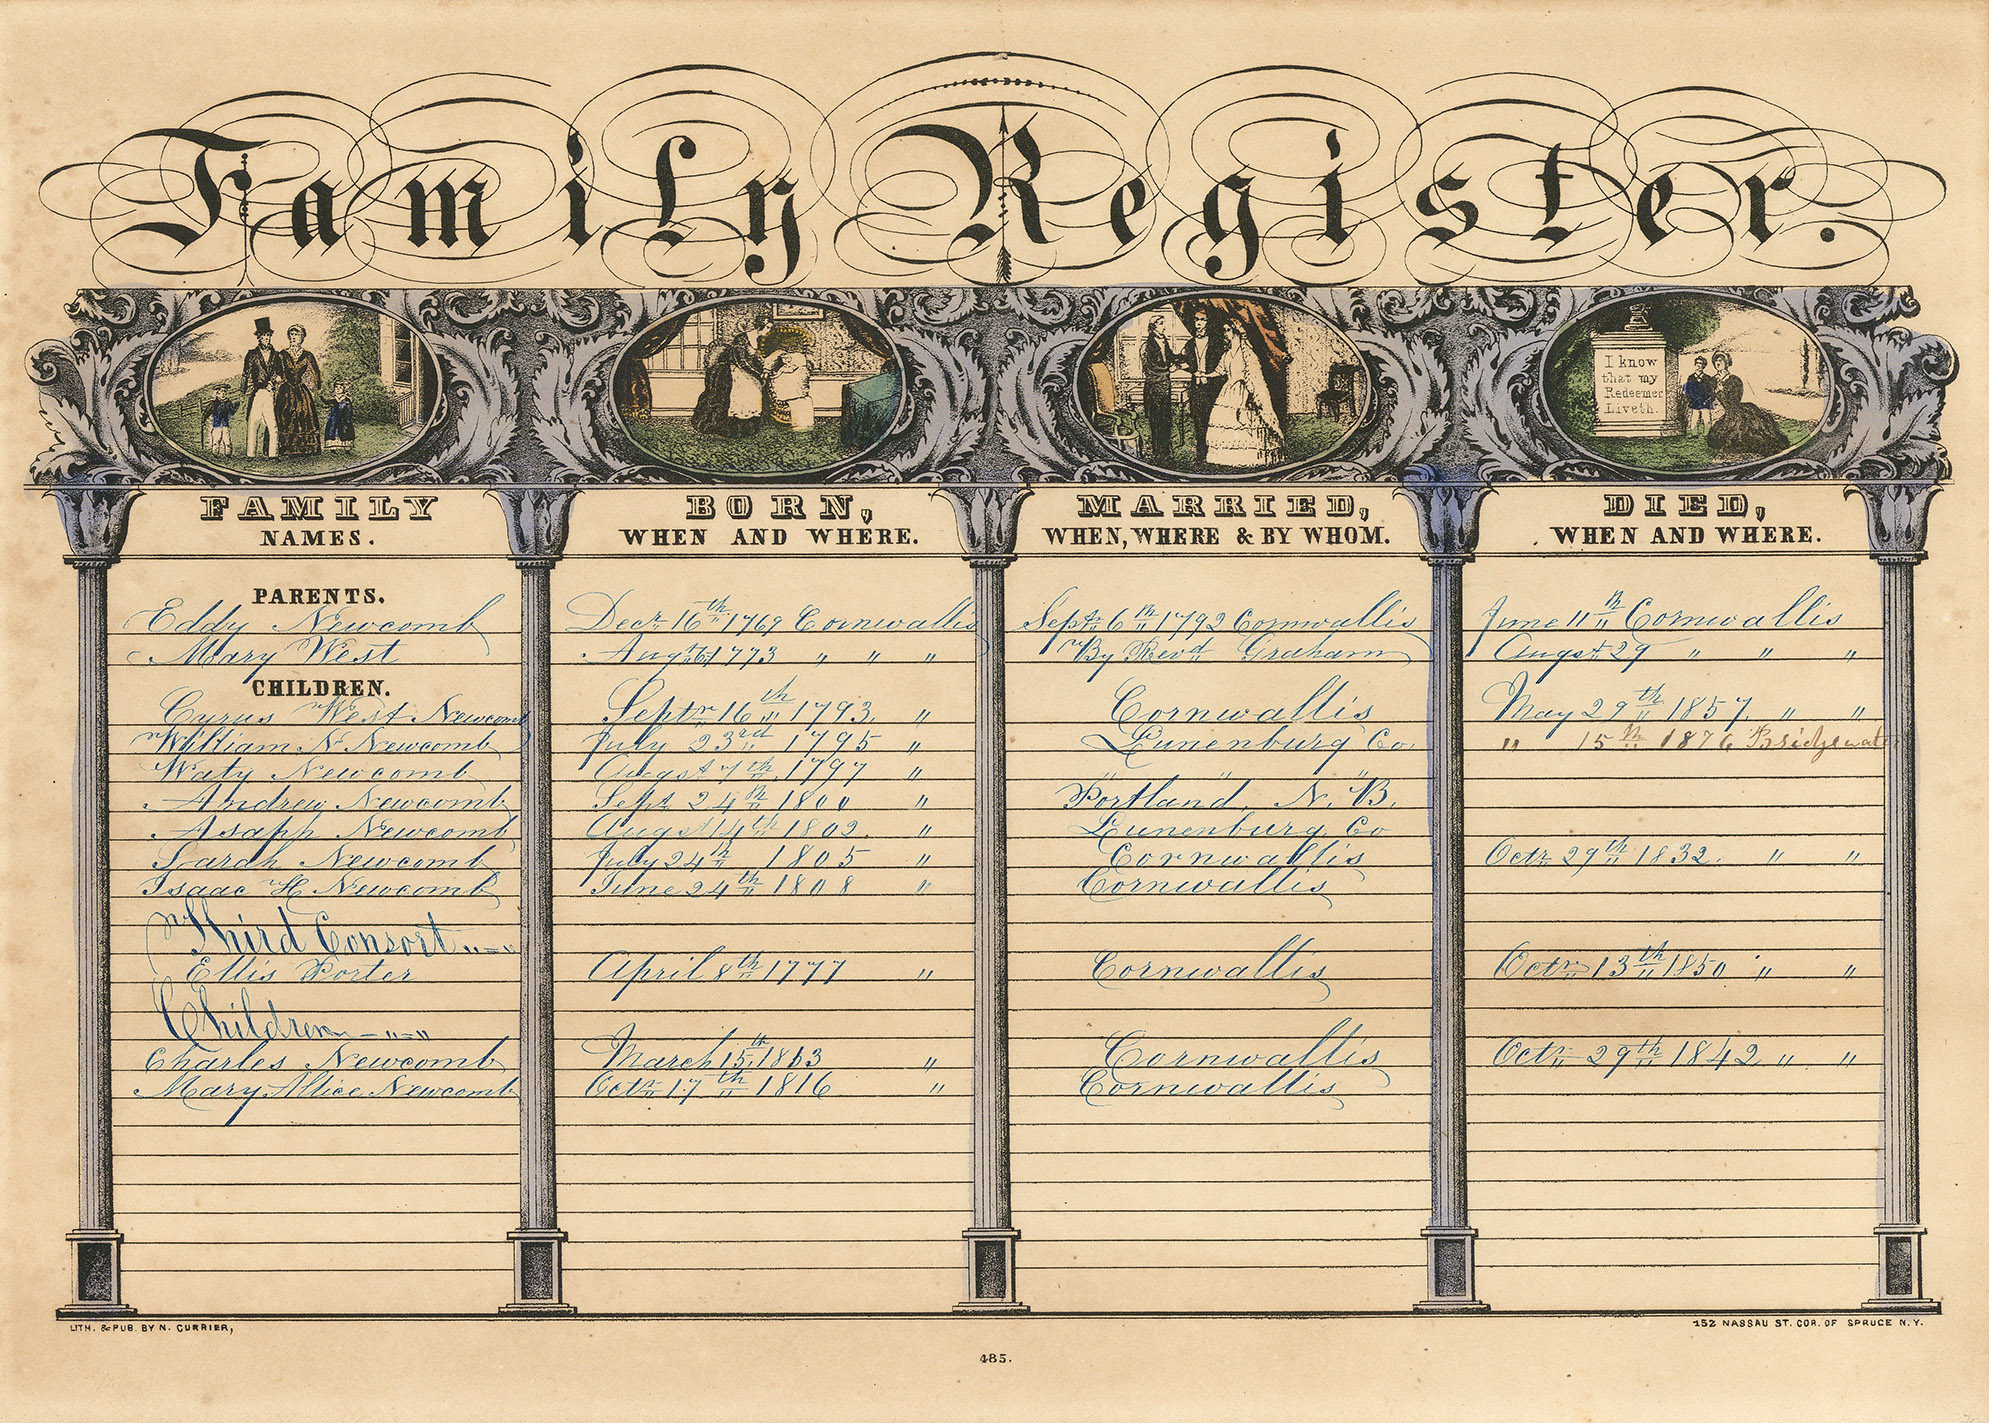 Family Register.
I know
that my
Redeemer
Liveth.
FAMILY BORN, MARRIED, DIED,
NAMES. WHEN AND WHERE. WHEN, WHERE & BY WHOM. WHEN AND WHERE.
PARENTS.
Eddy Newcomb Decr 16th 1769 Cornwallis Sept 6th 1792 Cornwallis June 11th Cornwallis
Mary West Augt 1773 " " " By Revd Graham Augst 29 " " "
CHILDREN.
Cyrus West Newcomb Septr 16th 1793 " Cornwallis May 29th 1857 " "
William N Newcomb July 23rd 1795 " Lunenburg Co. " 15th 1876 Bridgewater
Waty Newcomb Augst 7th 1797 " " " "
Andrew Newcomb Sept 24th 1800 " Portland, N. B.
Asaph Newcomb Augst 14th 1802. " Lunenburg Co
Sarah Newcomb July 24th 1805 " Cornwallis Octr 29th 1832. " "
Isaac H Newcomb June 24th 1808 " Cornwallis
Third Consort "="
Ellis Porter April 8th 1777 " Cornwallis Octr 13th 1850 " "
Children - "="
Charles Newcomb March 15th 1813 " Cornwallis Octr 29th 1842 " "
Mary Allice Newcomb Octr 17th 1816 " Cornwallis
LITH. & PUB. BY N. CURRIER, 152 NASSAU ST. COR. OF SPRUCE N.Y.
485.